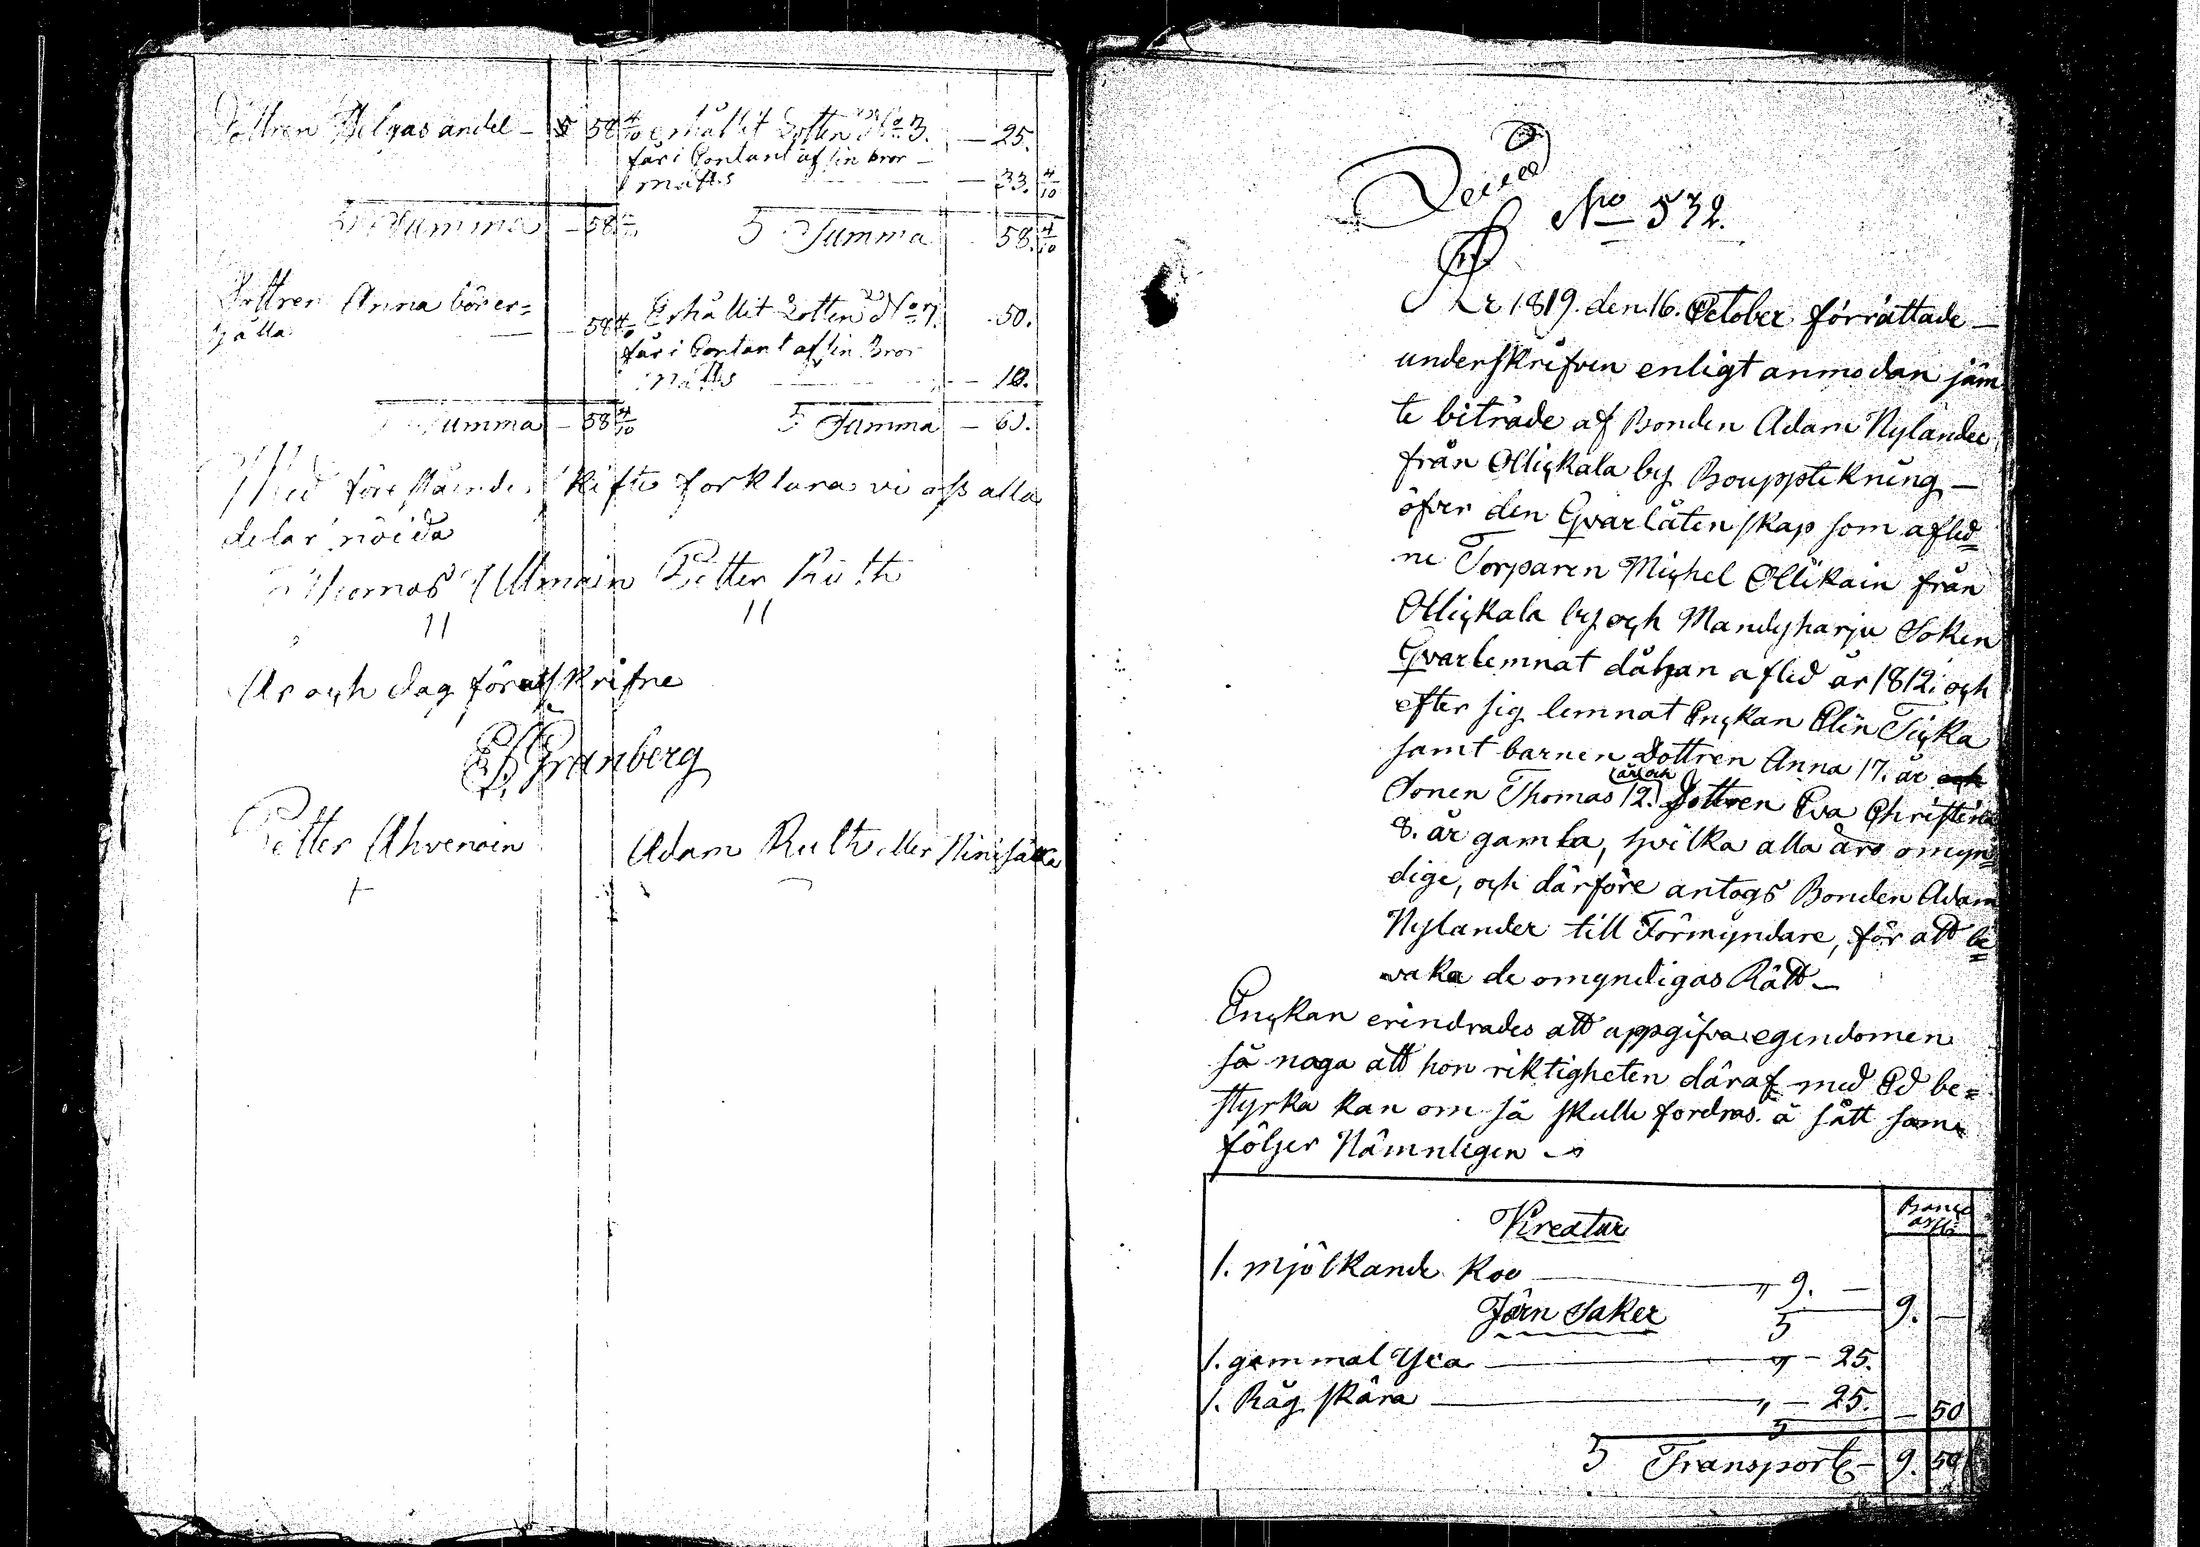 Dottren Helgas andel – 5 58 4/10 erhållit Lotten No 3. — 25.
får i Contant af sin bror –
Matts — 33. 4/10
5 Summa – 58 4/10 5 Summa 58. 4/10
Dottren Anna bör er=
hålla — 58 4/10 Erhållit Lotten No 7. 50.
får i Contant af sin Bror
Matts — 10.
Summa – 58 4/10 5 Summa – 60.
Med förestående skifte forklara vi oss alla
delar nöida
Thomas Ullmain Petter Ruth
År och dag förutskrifne
Granberg
Petter Ahvenain Adam Ruth eller
No 532.
År 1819. den 16. October förrättade –
underskrifven enligt anmodan jäm
te biträde af Bonden Adam Nylander
från Ollickala by Bouppteckning –
öfver den Qvarlåtenskap som afled=
ne Torparen Michel Ollikain från
Ollickala by och Mandyharju Soken
Qvarlemnat då han afled år 1812. och
efter sig lemnat Enckan Elin Ticka
samt barnen Dottren Anna 17. år och
Sonen Thomas 12. år och Dottren Eva Christina
8. år gamla, hvilka alla äro omyn=
dige, och därföre antogs Bonden Adam
Nylander till Förmyndare, för att be=
vaka de omyndigas Rätt –
Enckan erindrades att uppgifva egendomen
så noga att hon riktigheten däraf med Ed be=
styrka kan om så skulle fordras å sätt som
följer Nämnligen –
Kreatur
Banco
1. mjölkande Koo — „ 9. –
Järn Saker 5 9. –
1. gammal Yxa — „ – 25.
1. Råg skära — „ – 25. – 50
5 Transport – 9. 50